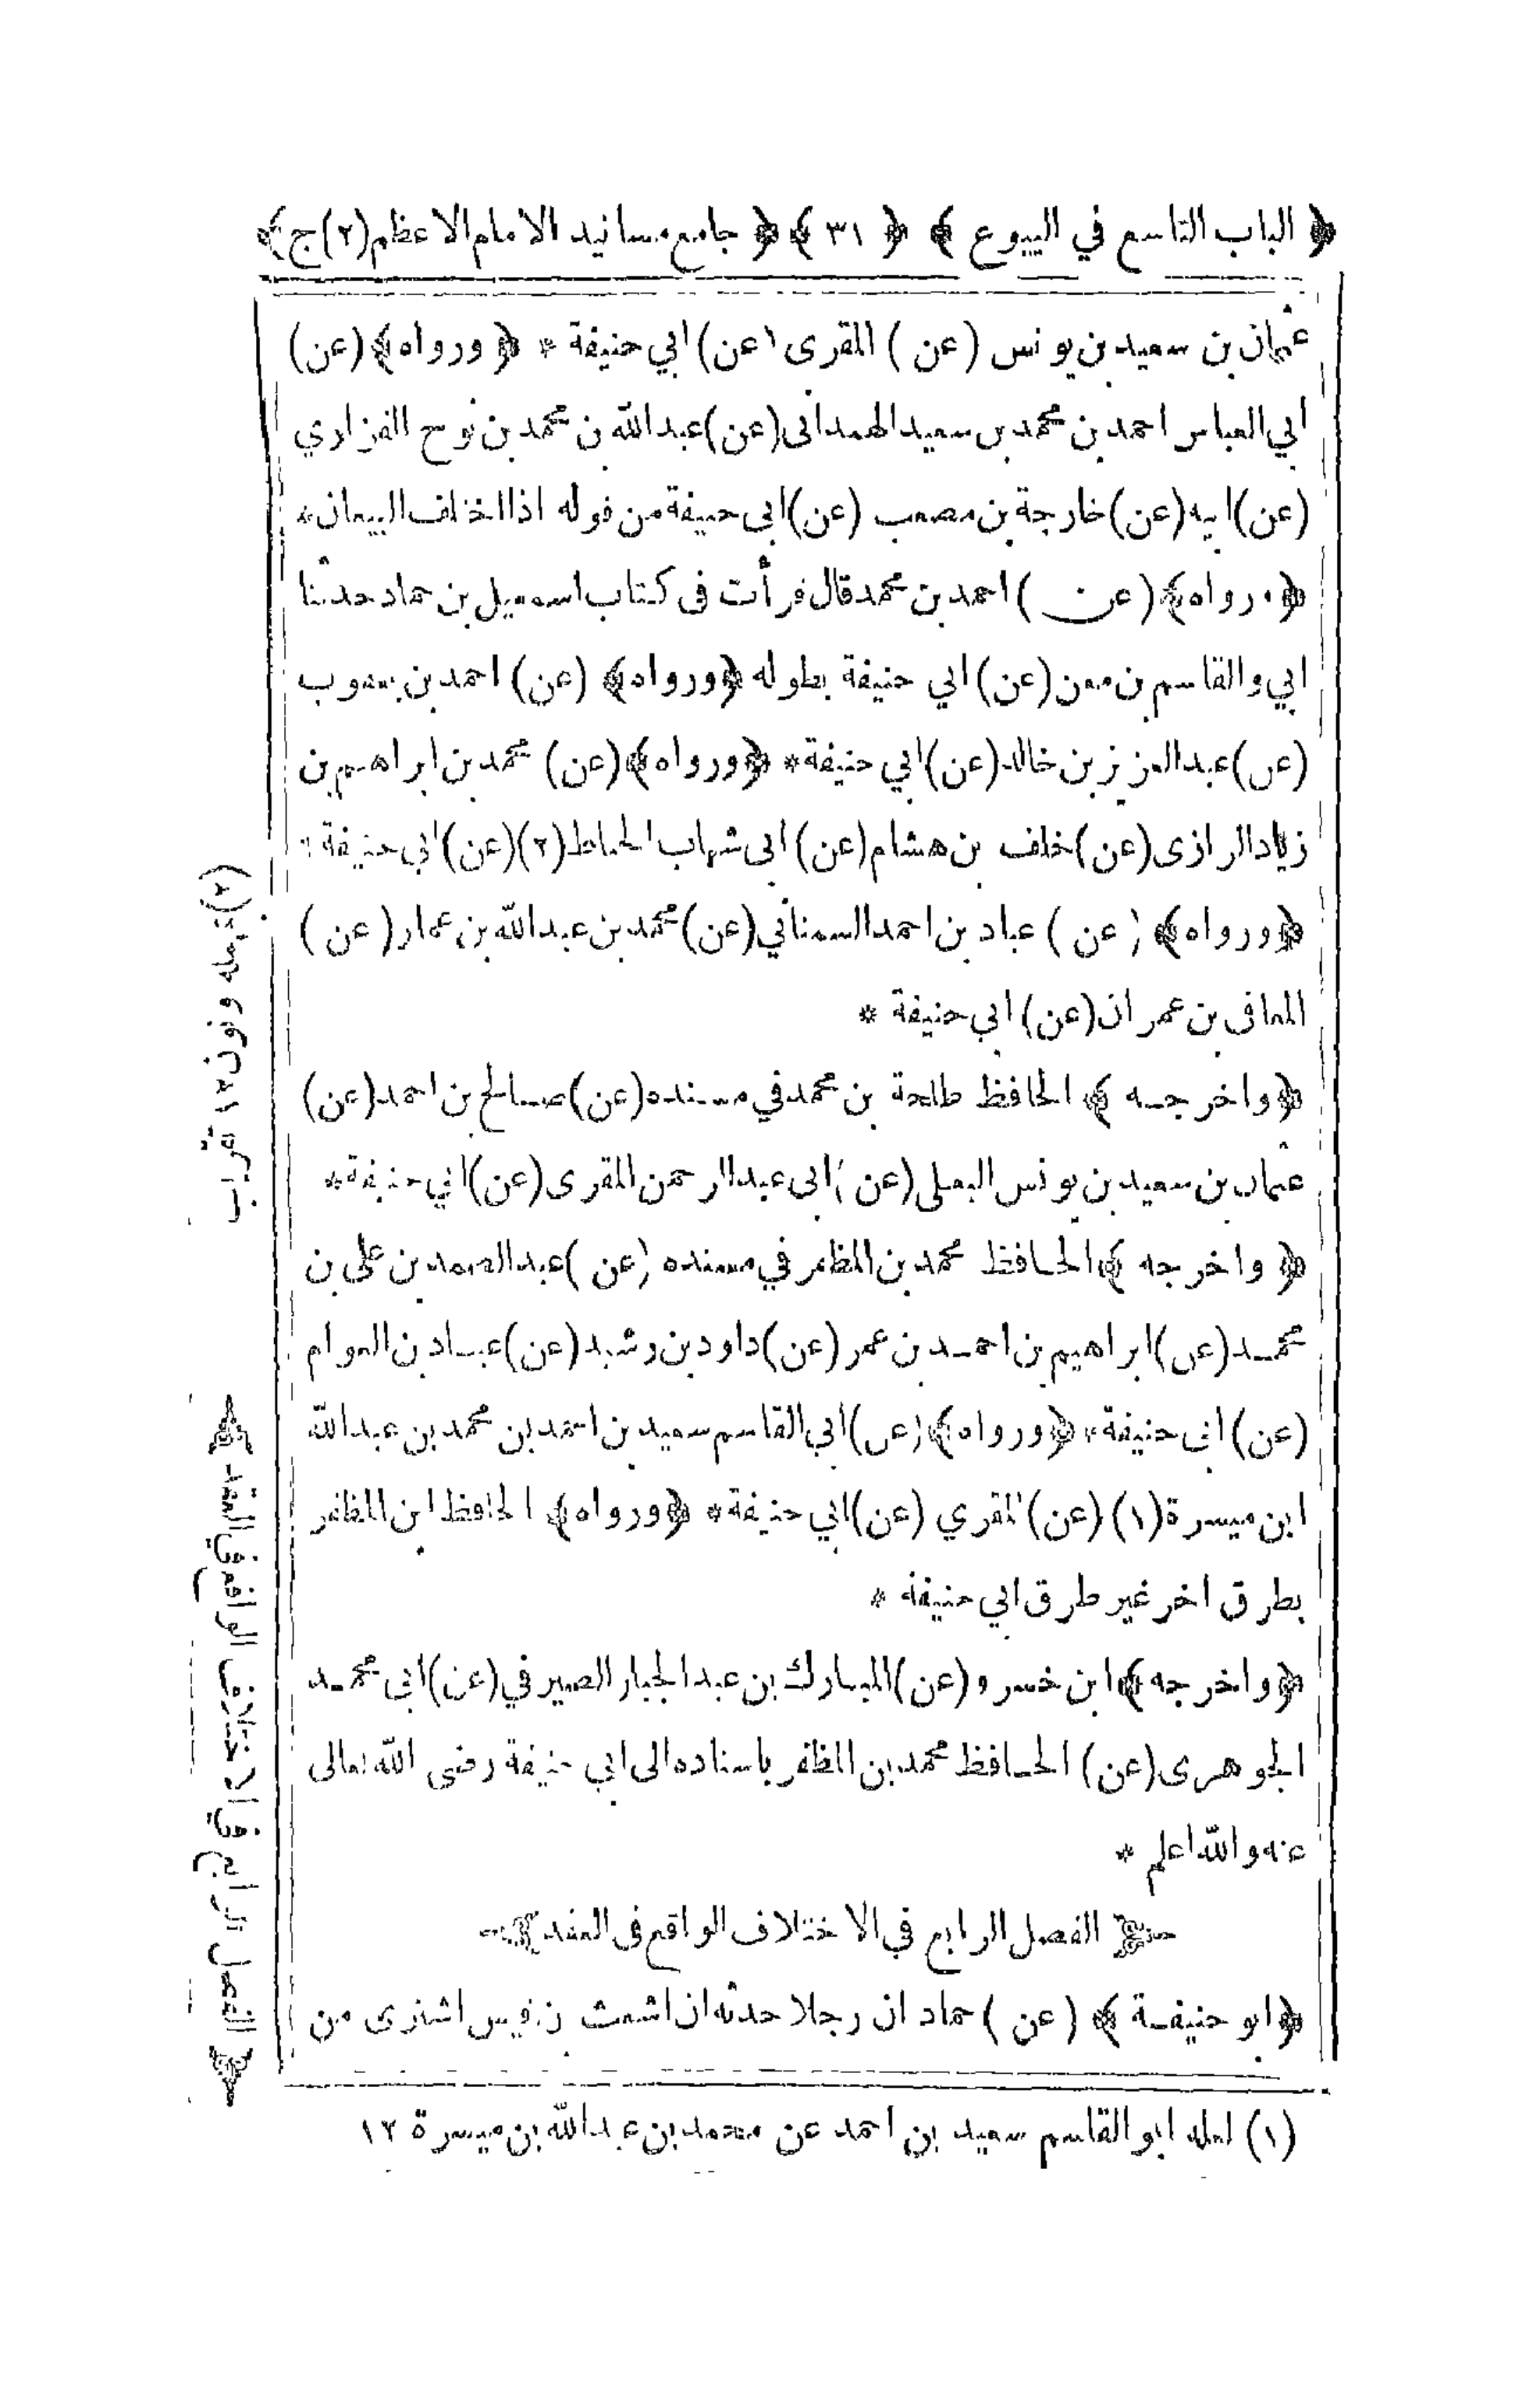 ﴿ الباب التاسع في البيوع ﴾ ﴿ ٣١ ﴾ ﴿ جامع مسانيد الامام الاعظم (٢) ج ﴾
عثمان بن سعيد بن يونس (عن) المقرى (عن) ابي حنيفة * ﴿ ورواه ﴾ (عن)
ابي العباس احمد بن محمد بن سعيد الهمدانى (عن) عبد الله بن محمد بن نوح الفزاري
(عن) ابيه (عن) خارجة بن مصعب (عن) ابى حنيفة من قوله اذا اختلف البيعان *
﴿ ورواه ﴾ (عن) احمد بن محمد قال قرأت فى كتاب اسمعيل بن حماد حدثنا
ابي والقاسم بن معن (عن) ابي حنيفة بطوله ﴿ ورواه ﴾ (عن) احمد بن يعقوب
(عن) عبد العزيز بن خالد (عن) ابي حنيفة * ﴿ ورواه ﴾ (عن) محمد بن ابراهيم بن
زياد الرازى (عن) خلف بن هشام (عن) ابى شهاب الحناط (٢) (عن) ابي حنيفة *
﴿ ورواه ﴾ (عن) عباد بن احمد السمناني (عن) محمد بن عبد الله بن عمار (عن)
المعافى بن عمران (عن) ابي حنيفة *
﴿ واخرجه ﴾ الحافظ طلحة بن محمد في مسنده (عن) صالح بن احمد (عن)
عثمان بن سعيد بن يونس البعلى (عن) ابى عبد الرحمن المقرى (عن) ابي حنيفة *
﴿ واخرجه ﴾ الحافظ محمد بن المظفر في مسنده (عن) عبد الصمد بن على بن
محمد (عن) ابراهيم بن احمد بن عمر (عن) داود بن رشيد (عن) عباد بن العوام
(عن) ابى حنيفة * ﴿ ورواه ﴾ (عن) ابي القاسم سعيد بن احمد بن محمد بن عبد الله
ابن ميسرة (١) (عن) المقري (عن) ابي حنيفة * ﴿ ورواه ﴾ الحافظ ابن المظفر
بطرق اخر غير طرق ابي حنيفة *
﴿ واخرجه ﴾ ابن خسرو (عن) المبارك بن عبد الجبار الصيرفي (عن) ابى محمد
الجوهرى (عن) الحافظ محمد بن المظفر باسناده الى ابي حنيفة رضى الله تعالى
عنه والله اعلم *
الفصل الرابع في الاختلاف الواقع فى العقد
﴿ ابو حنيفة ﴾ (عن) حماد ان رجلا حدثه ان اشعث بن قيس اشترى من
(١) لعله ابو القاسم سعيد بن احمد عن محمد بن عبد الله بن ميسرة ١٢
(٢) بمهملة ونون ١٢ تقريب
﴿ الفصل الرابع في الاختلاف الواقع في العقد ﴾